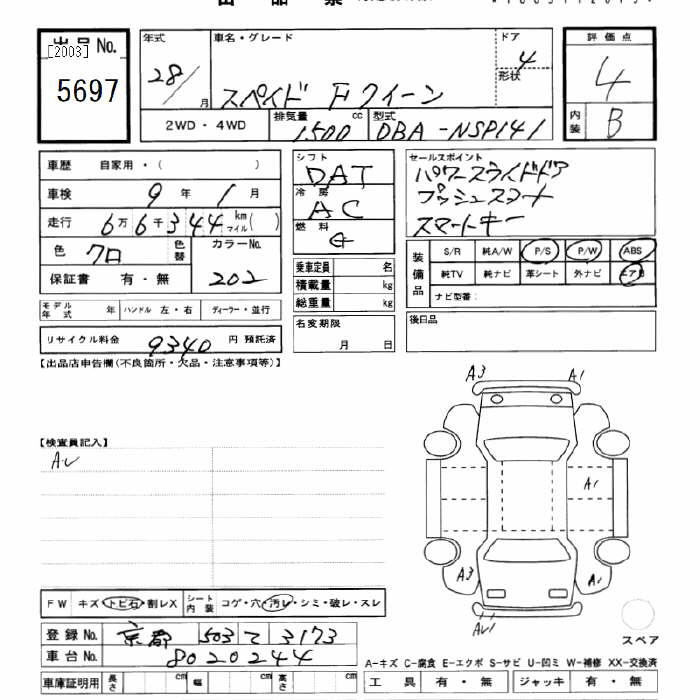 出品票
出品 No.
[2003]
5697
年式
28/
月
車名・グレード
スペイド Fクイーン
ドア
4
形状
評価点
4
内装
B
2WD・4WD
排気量
1500
cc
型式
DBA-NSP141
車歴 自家用・( )
車検 9年 1月
走行 6万6千344 km マイル( )
色 クロ
色替
カラーNo.
202
保証書 有・無
モデル年式 年 ハンドル 左・右 ディーラー・並行
リサイクル料金 9340 円 預託済
シフト
DAT
冷房
AC
燃料
G
乗車定員 名
積載量 kg
総重量 kg
名変期限
月 日
セールスポイント
パワースライドドア
プッシュスタート
スマートキー
装備品
S/R 純A/W P/S P/W ABS
純TV 純ナビ 革シート 外ナビ エアB
ナビ型番：
後日品
【出品店申告欄(不良箇所・欠品・注意事項等)】
【検査員記入】
AU
A3 A1
A1
A3 A1
AU1
スペア
FW キズ・トビ石・割レX シート内装 コゲ・穴・汚レ・シミ・破レ・スレ
登録 No. 京都 503 て 3173
車台 No. 8020244
車庫証明用 長さ cm 幅 cm 高さ cm
A-キズ C-腐食 E-エクボ S-サビ U-凹ミ W-補修 XX-交換済
工具 有・無 ジャッキ 有・無